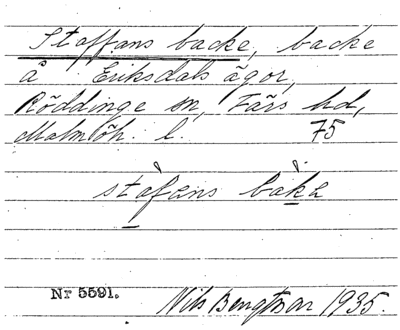 Staffans backe, backe
å Eriksdals ägor,
Röddinge sn, Färs hd,
Malmöh. l. 75
stafens baka
Nr 5591. Nils Bengtsson 1935.